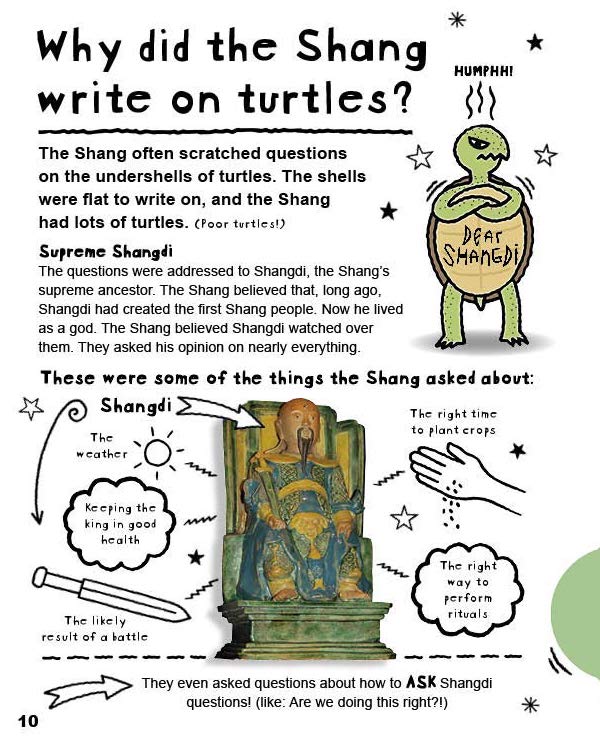 Why did the Shang
write on turtles?
HUMPHH!
The Shang often scratched questions
on the undershells of turtles. The shells
were flat to write on, and the Shang
had lots of turtles. (Poor turtles!)
DEAR
SHANGDI
Supreme Shangdi
The questions were addressed to Shangdi, the Shang's
supreme ancestor. The Shang believed that, long ago,
Shangdi had created the first Shang people. Now he lived
as a god. The Shang believed Shangdi watched over
them. They asked his opinion on nearly everything.
These were some of the things the Shang asked about:
Shangdi
The
weather
Keeping the
king in good
health
The likely
result of a battle
The right time
to plant crops
The right
way to
perform
rituals
They even asked questions about how to ASK Shangdi
questions! (like: Are we doing this right?!)
10